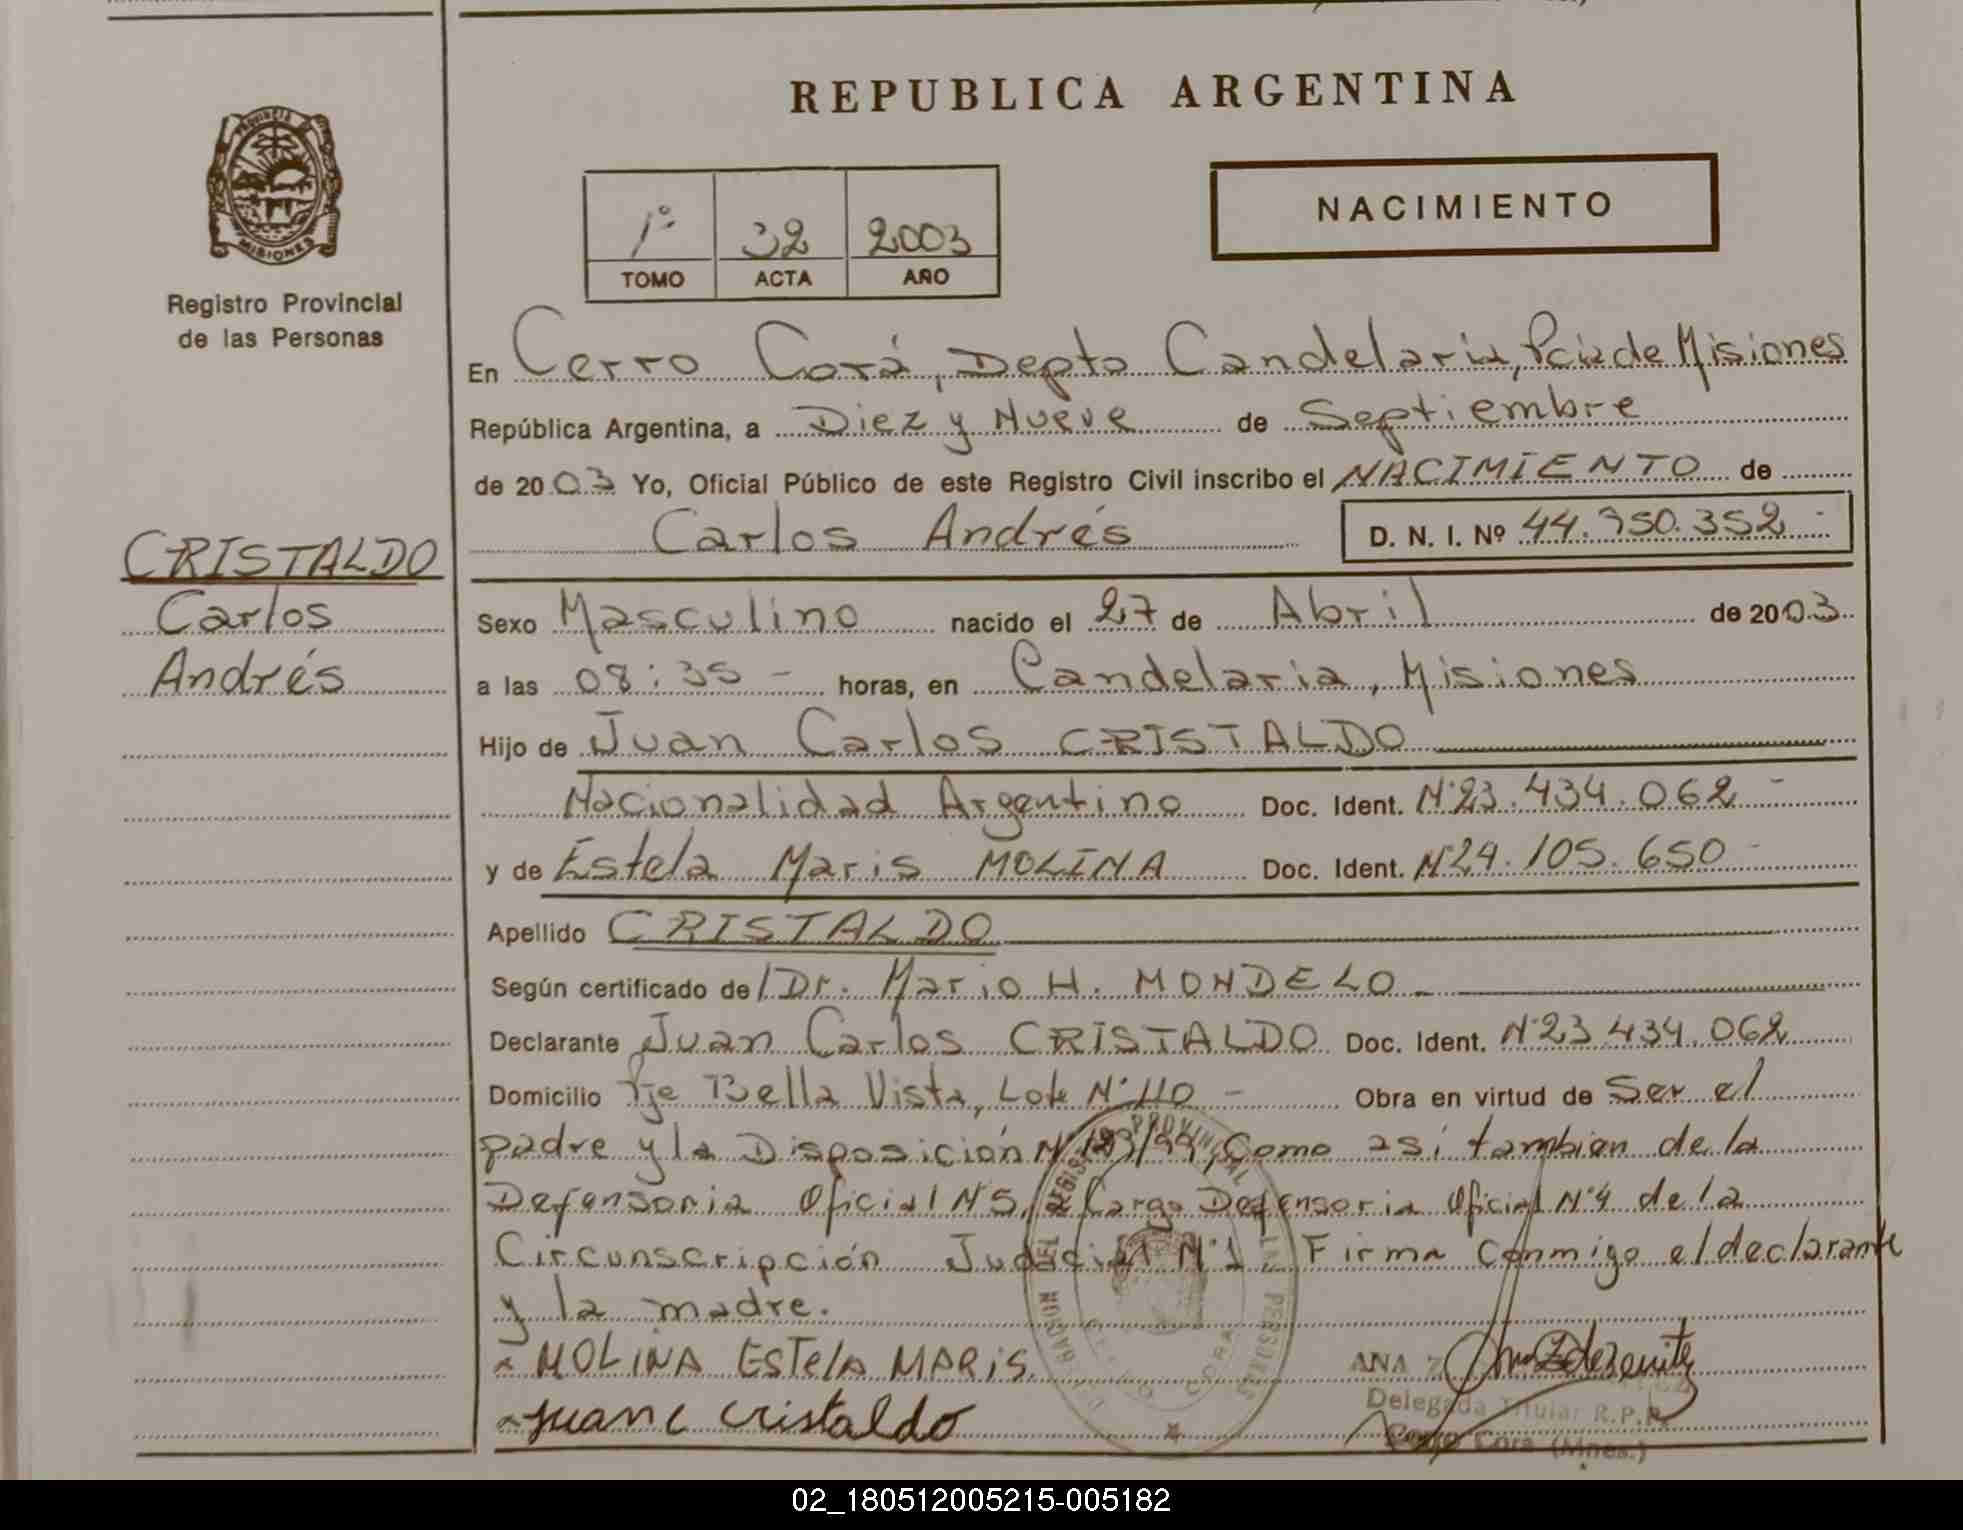 REPUBLICA ARGENTINA
PROVINCIA DE
MISIONES
Registro Provincial
de las Personas
1º 32 2003
TOMO ACTA AÑO
NACIMIENTO
En Cerro Corá, Depto Candelaria, Pcia de Misiones
República Argentina, a Diez y Nueve de Septiembre
de 2003 Yo, Oficial Público de este Registro Civil inscribo el NACIMIENTO de
Carlos Andrés D. N. I. Nº 44.950.352 -
CRISTALDO
Carlos
Andrés
Sexo Masculino nacido el 27 de Abril de 2003
a las 08:35 - horas, en Candelaria, Misiones
Hijo de Juan Carlos CRISTALDO
Nacionalidad Argentino Doc. Ident. Nº23.434.062 -
y de Estela Maris MOLINA Doc. Ident. Nº24.105.650 -
Apellido CRISTALDO
Según certificado de/Dr. Mario H. MONDELO -
Declarante Juan Carlos CRISTALDO Doc. Ident. Nº23.434.062
Domicilio Pje Bella Vista, Lote Nº110 - Obra en virtud de Ser el
padre y la Disposición Nº 193/99, Como asi tambien de la
Defensoria Oficial Nº5, a Cargo Defensoria Oficial Nº4 de la
Circunscripción Judicial Nº1 Firma Conmigo el declarante
y la madre.
MOLINA EStelA MARiS.
Juan C Cristaldo
ANA
Delegada Titular R.P.P.
Cerro Cora (Mnes.)
02_180512005215-005182